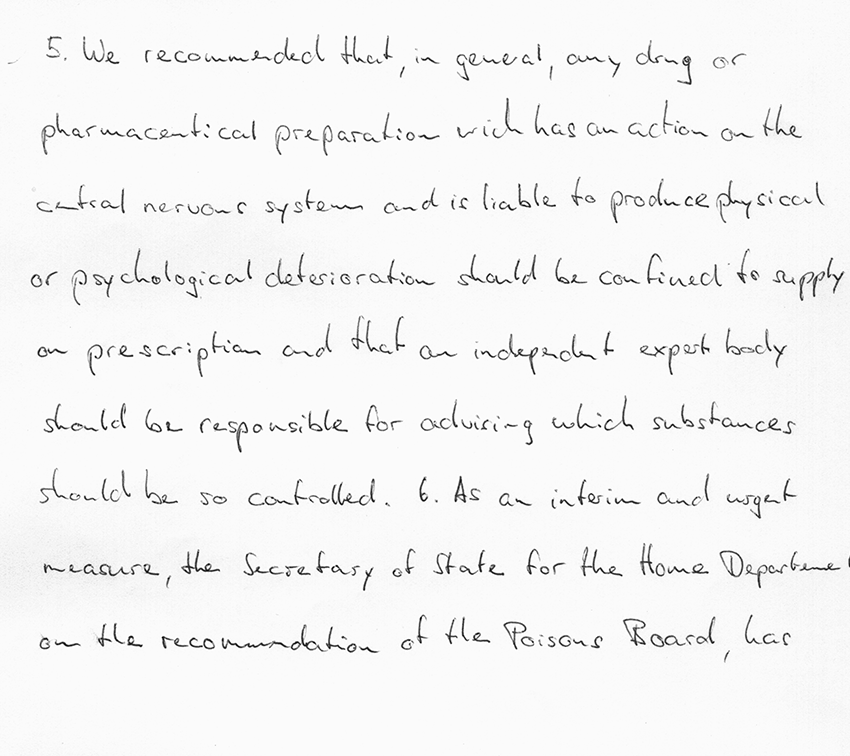 5. We recommended that, in general, any drug or
pharmaceutical preparation wich has an action on the
central nervous system and is liable to produce physical
or psychological deterioration should be confined to supply
on prescription and that an independent expert body
should be responsible for advising which substances
should be so controlled. 6. As an interim and urgent
measure, the Secretary of State for the Home Departme
on the recommendation of the Poisons Board, has